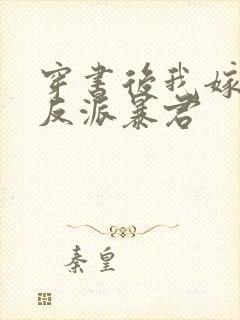 穿書後我嫁
反派暴君
秦皇